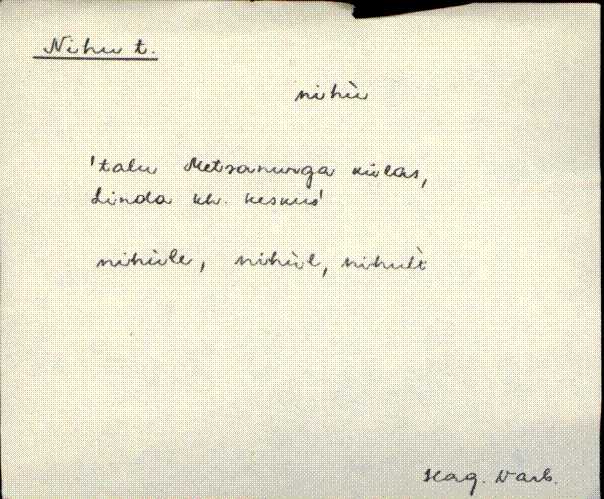 Nihu t.
nihù
'talu Metsanurga külas,
Linda kh. keskus'
nihùle, nihùl, nihult̀
Hag. Varb.